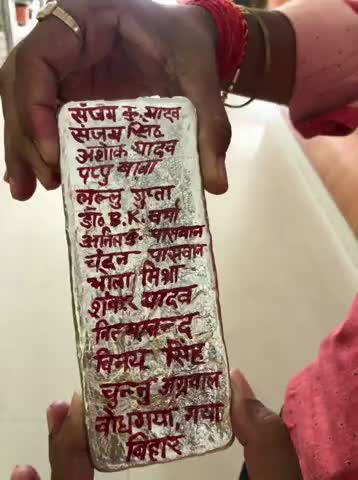 संजय कु. यादव
संजय सिंह
अशोक यादव
पप्पु बाबा
लल्लु गुप्ता
डॉ० B.K. वर्मा
अनिल कु. पासवान
चंदन पासवान
भोला मिश्रा
शंकर यादव
विनय सिंह
चुन्नु अग्रवाल
बोधगया, गया
बिहार